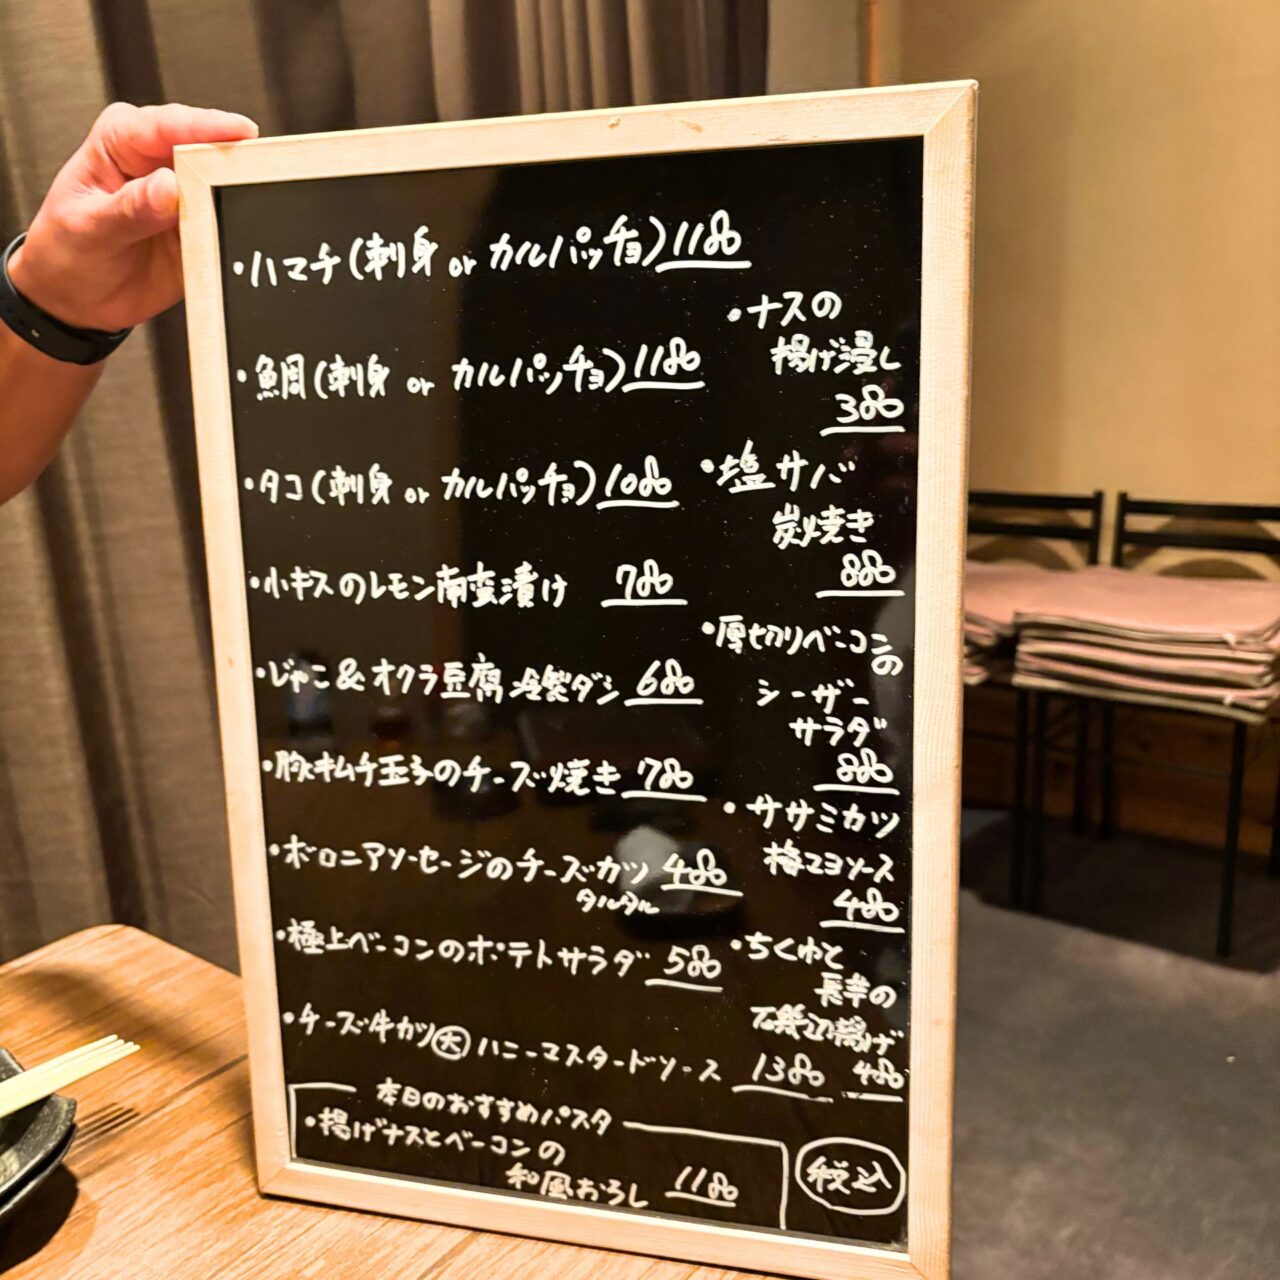 ・ハマチ(刺身 or カルパッチョ)1180
・鯛(刺身 or カルパッチョ)1180
・タコ(刺身 or カルパッチョ)1080
・小キスのレモン南蛮漬け 780
・じゃこ&オクラ豆腐 冷製ダシ 680
・豚キムチ玉子のチーズ焼き 780
・ボロニアソーセージのチーズカツ 480
タルタル
・極上ベーコンのポテトサラダ 580
・チーズ牛カツ大 ハニーマスタードソース 1380
・ナスの
揚げ浸し
380
・塩サバ
炭焼き
880
・厚切りベーコンの
シーザー
サラダ
880
・ササミカツ
梅マヨソース
480
・ちくわと
長芋の
磯辺揚げ
480
本日のおすすめパスタ
・揚げナスとベーコンの
和風おろし 1180
税込